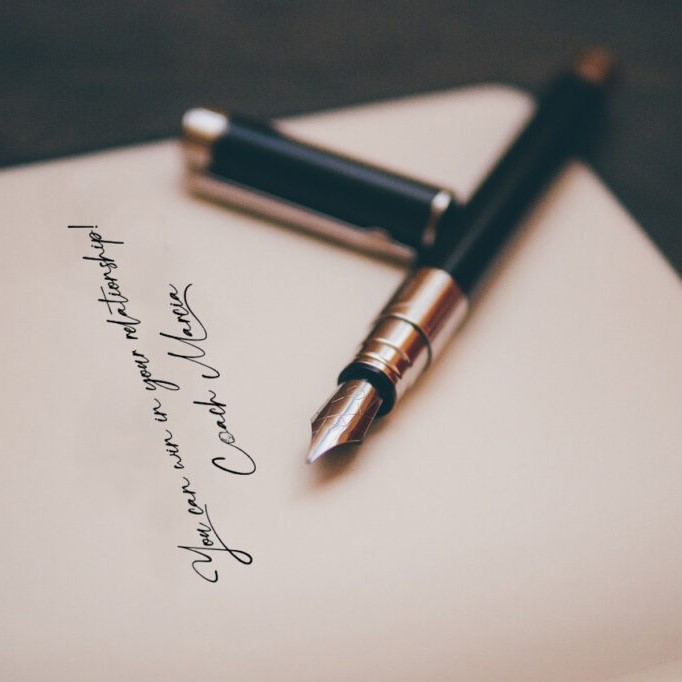 You can win in your relationship!
Coach Marcia